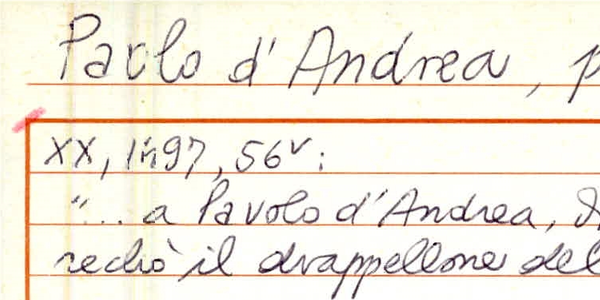 Paolo d'Andrea, p
XX, 1497, 56v:
"... a Pavolo d'Andrea,
rechò il drappellone del